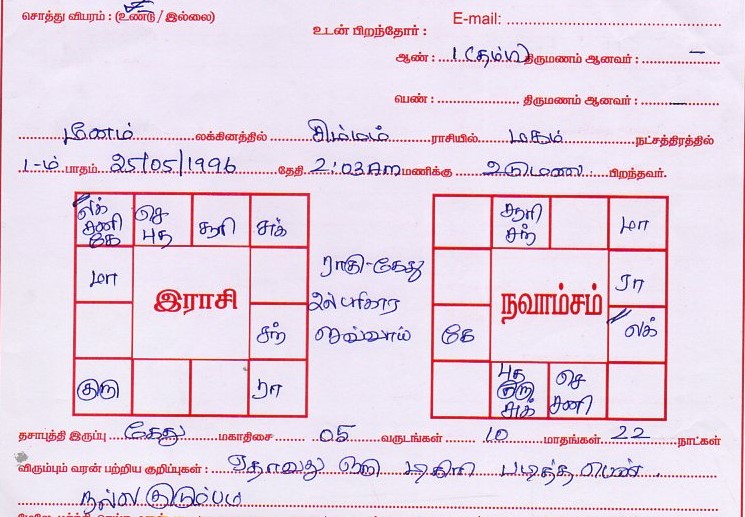 சொத்து விபரம் : (உண்டு / இல்லை)
E-mail:
உடன் பிறந்தோர் :
ஆண் : 1 (தம்பி) திருமணம் ஆனவர் : –
பெண் : திருமணம் ஆனவர் : –
மீனம் லக்கினத்தில் சிம்மம் ராசியில் மகம் நட்சத்திரத்தில்
1-ம் பாதம் 25/05/1996 தேதி 2:03 AM மணிக்கு உடுமலை பிறந்தவர்.
லக் சனி கே
செ புத
சூரி
சுக்
மா
இராசி
சந்
குரு
ரா
ராகு - கேது
செவ்வாய்
சூரி சந்
மா
ரா
நவாம்சம்
கே
லக்
புத குரு சுக்
செ சனி
தசாபுத்தி இருப்பு கேது மகாதிசை 05 வருடங்கள் 10 மாதங்கள் 22 நாட்கள்
விரும்பும் வரன் பற்றிய குறிப்புகள் : ஏதாவது ஒரு டிகிரி படித்த பெண்.
நல்ல குடும்பம்